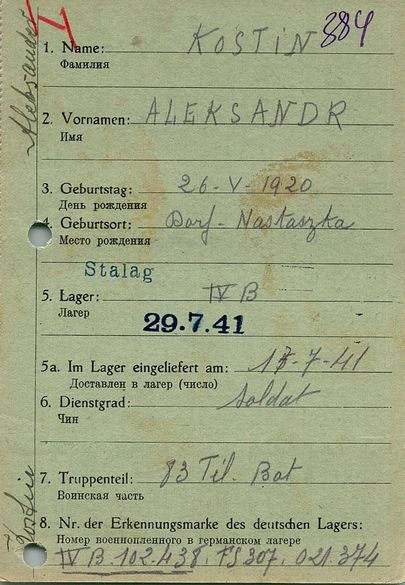 384
1. Name: KOSTIN
Фамилия
Aleksander
2. Vornamen: ALEKSANDR
Имя
3. Geburtstag: 26-V-1920
День рождения
4. Geburtsort: Dorf-Nastaszka
Место рождения
Stalag
5. Lager: IV B
Лагер
29.7.41
5a. Im Lager eingeliefert am: 17-7-41
Доставлен в лагер (число)
6. Dienstgrad: Soldat
Чин
7. Truppenteil: 83 Bat
Воинская часть
8. Nr. der Erkennungsmarke des deutschen Lagers:
Номер военнопленного в германском лагере
IV B 102.438. FS 307. 021.374